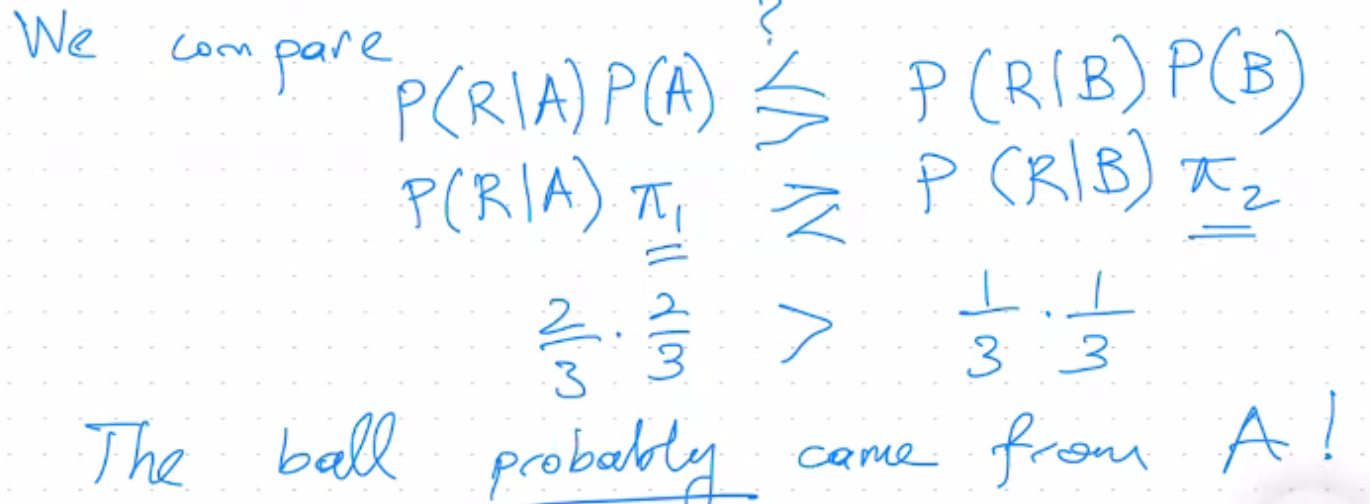 We compare
?
P(R|A) P(A) ≶ P(R|B) P(B)
P(R|A) π₁ ≷ P(R|B) π₂
2/3 · 2/3 > 1/3 · 1/3
The ball probably came from A!